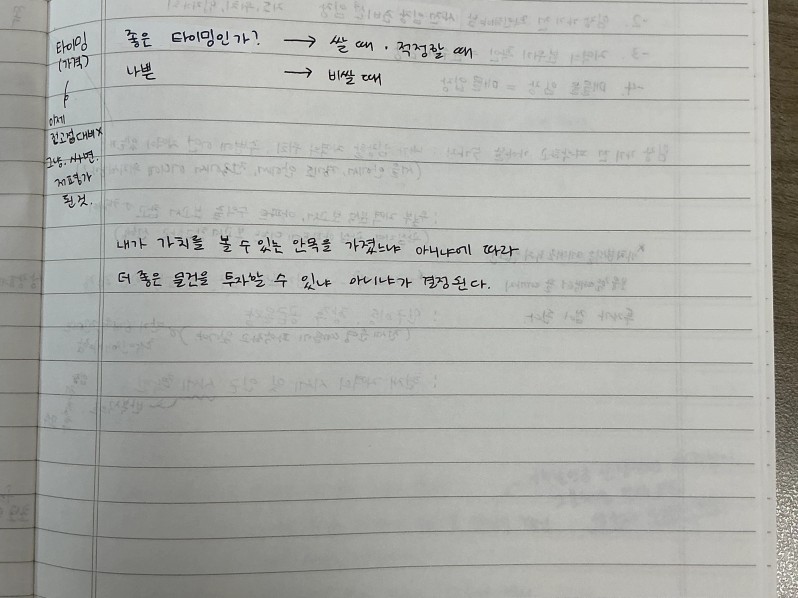 타이밍
(가격)
이제
전고점대비 x
그냥. 사면.
재평가
된것.
좋은 타이밍인가? → 쌀 때 · 적정할 때
나쁜 → 비쌀 때
내가 가치를 볼 수 있는 안목을 가졌느냐 아니냐에 따라
더 좋은 물건을 투자할 수 있냐 아니냐가 결정된다.